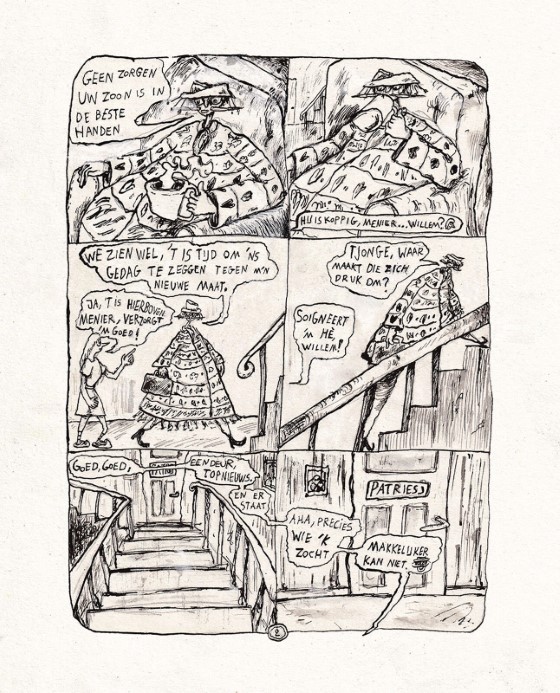 GEEN ZORGEN
UW ZOON IS IN
DE BÉSTE
HANDEN
HIJ IS KOPPIG, MENIER...WILLEM?
WE ZIEN WEL, 'T IS TIJD OM 'NS
GEDAG TE ZEGGEN TEGEN M'N
NIEUWE MAAT.
JA, 'T IS HIERBOVEN
MENIER, VERZORGT
'M GOED!
TJONGE, WAAR
MAAKT DIE ZICH
DRUK OM?
SOIGNEERT
'M HÈ,
WILLEM!
GOED, GOED,
EEN DEUR,
TOPNIEUWS.
EN ER
STAAT
PATRIES
AHA, PRECIES
WIE 'K
ZOCHT
MAKKELIJKER
KAN NIET.
2